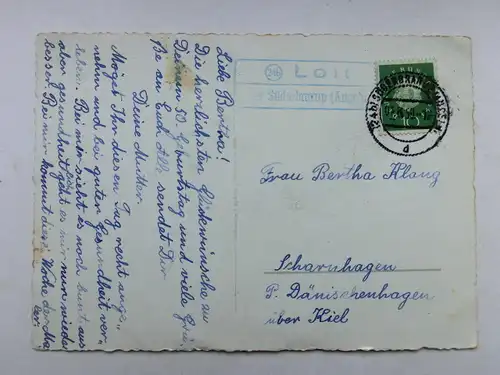 Liebe Bertha!
Die herzlichsten Glückwünsche zu
Deinem 50. Geburtstag und viele Grü-
ße an Euch Alle, sendet Dir
Deine Mutter.
Möget Ihr diesen Tag recht ange-
nehm und bei guter Gesundheit ver-
leben. Bei mir sieht es noch bunt aus
aber gesundheitlich geht es mir nun wieder
besser. Bei mir kommt diese Woche der Ma-
ler.
(24b) Loit
Süderbrarup (Ang.)
(24b) SÜDERBRARUP
d
10
Frau Bertha Klang
Scharnhagen
P. Dänischenhagen
über Kiel